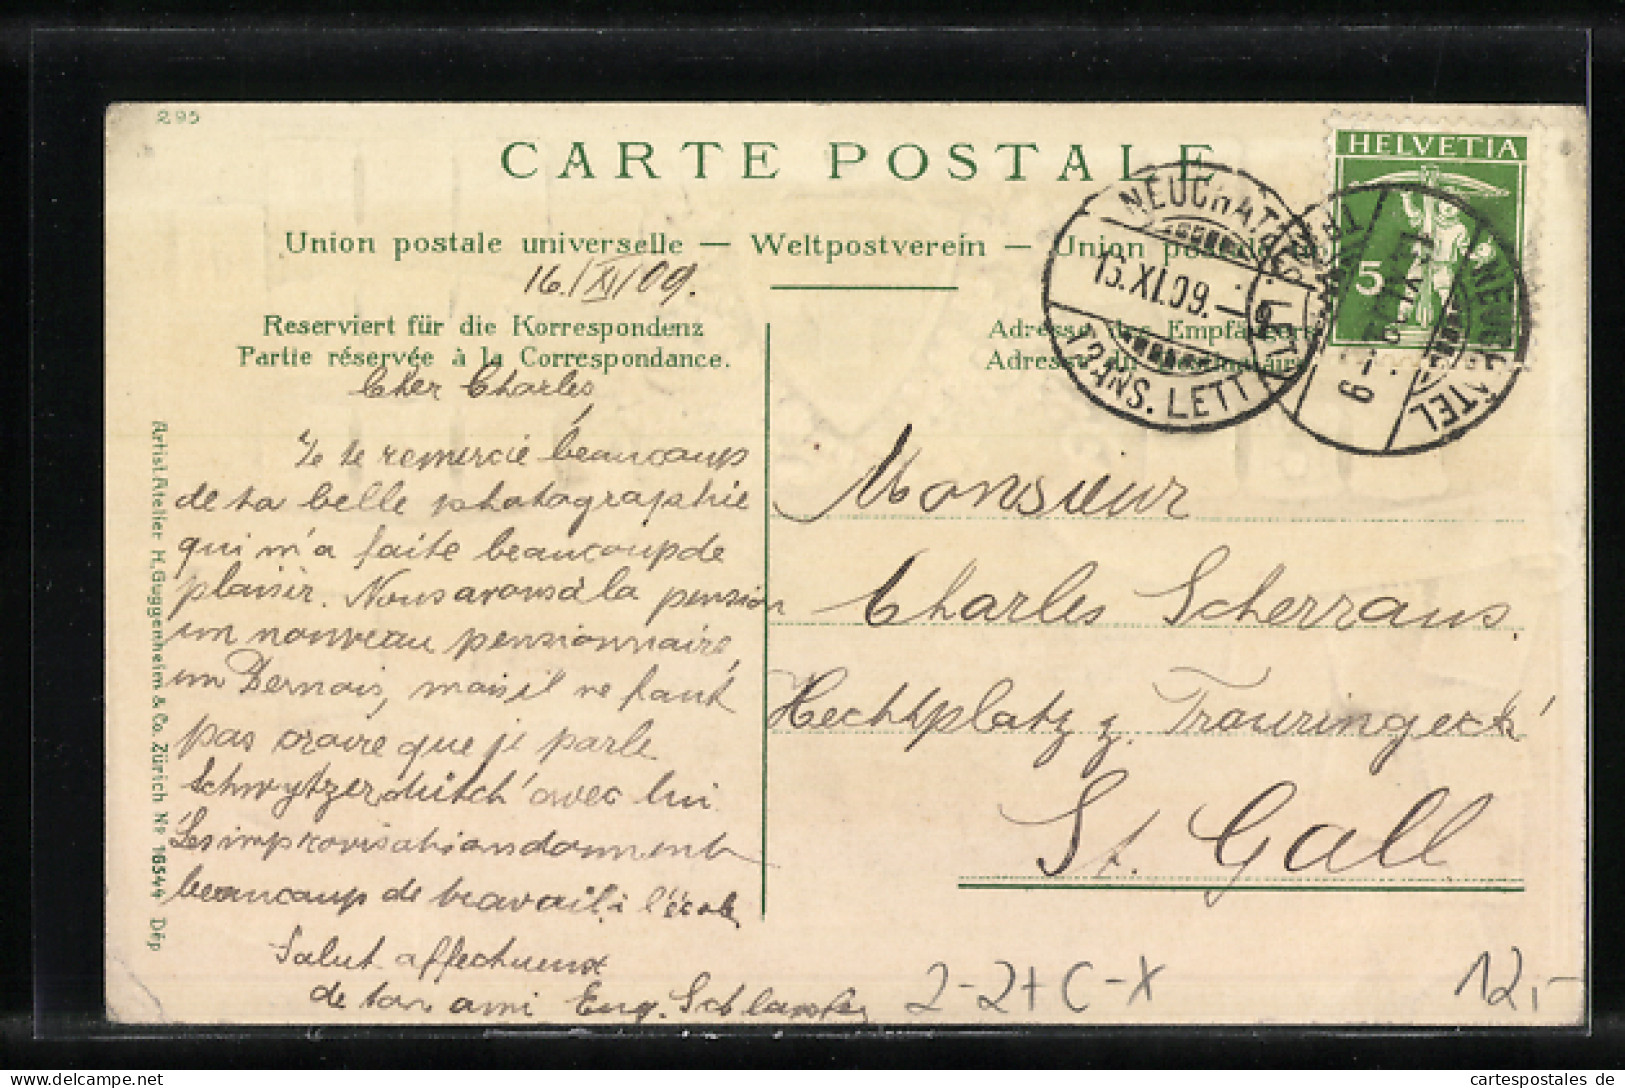 295
CARTE POSTALE
HELVETIA
5
Union postale universelle — Weltpostverein — Union
16./XI/09.
NEUCHATEL
XI.09.–9
TRANS. LETTR.
NEUCHATEL
Reserviert für die Korrespondenz
Partie réservée à la Correspondance.
Adresse des Empfängers
Adresse du
Cher Charles,
Je te remercie beaucoup
de ta belle photographie
qui m'a faite beaucoup de
plaisir. Nous avons à la pension
un nouveau pensionnaire,
un Bernois, mais il ne faut
pas croire que je parle
Schwytzerdütsch avec lui
Les improvisations donnent
beaucoup de travail à l'école
Salut affectueux
de ton ami Eug.
Monsieur
Charles Scherraus.
Hechtplatz z. Trauringeck'
St. Gall
2-2+C-X
12,-
Artist. Atelier H. Guggenheim & Co. Zürich Nº 16544 Dép
cartespostales de
cartespostales.de